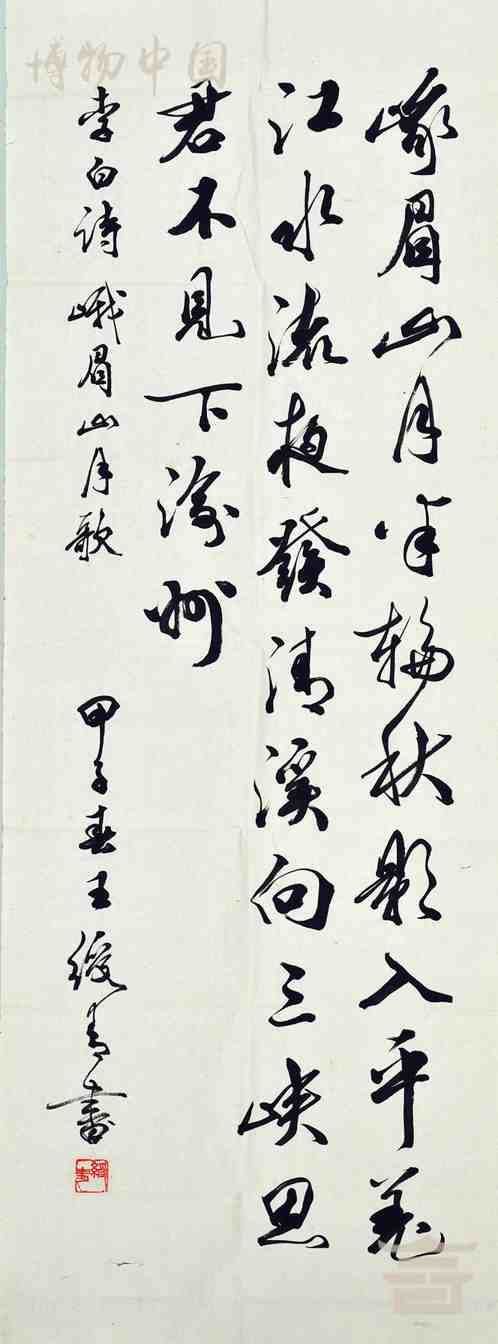 峨眉山月半輪秋影入平羌
江水流夜發清溪向三峡思
君不見下渝州
李白詩 峨眉山月歌 甲子春王綬青書
綬青
博物中国